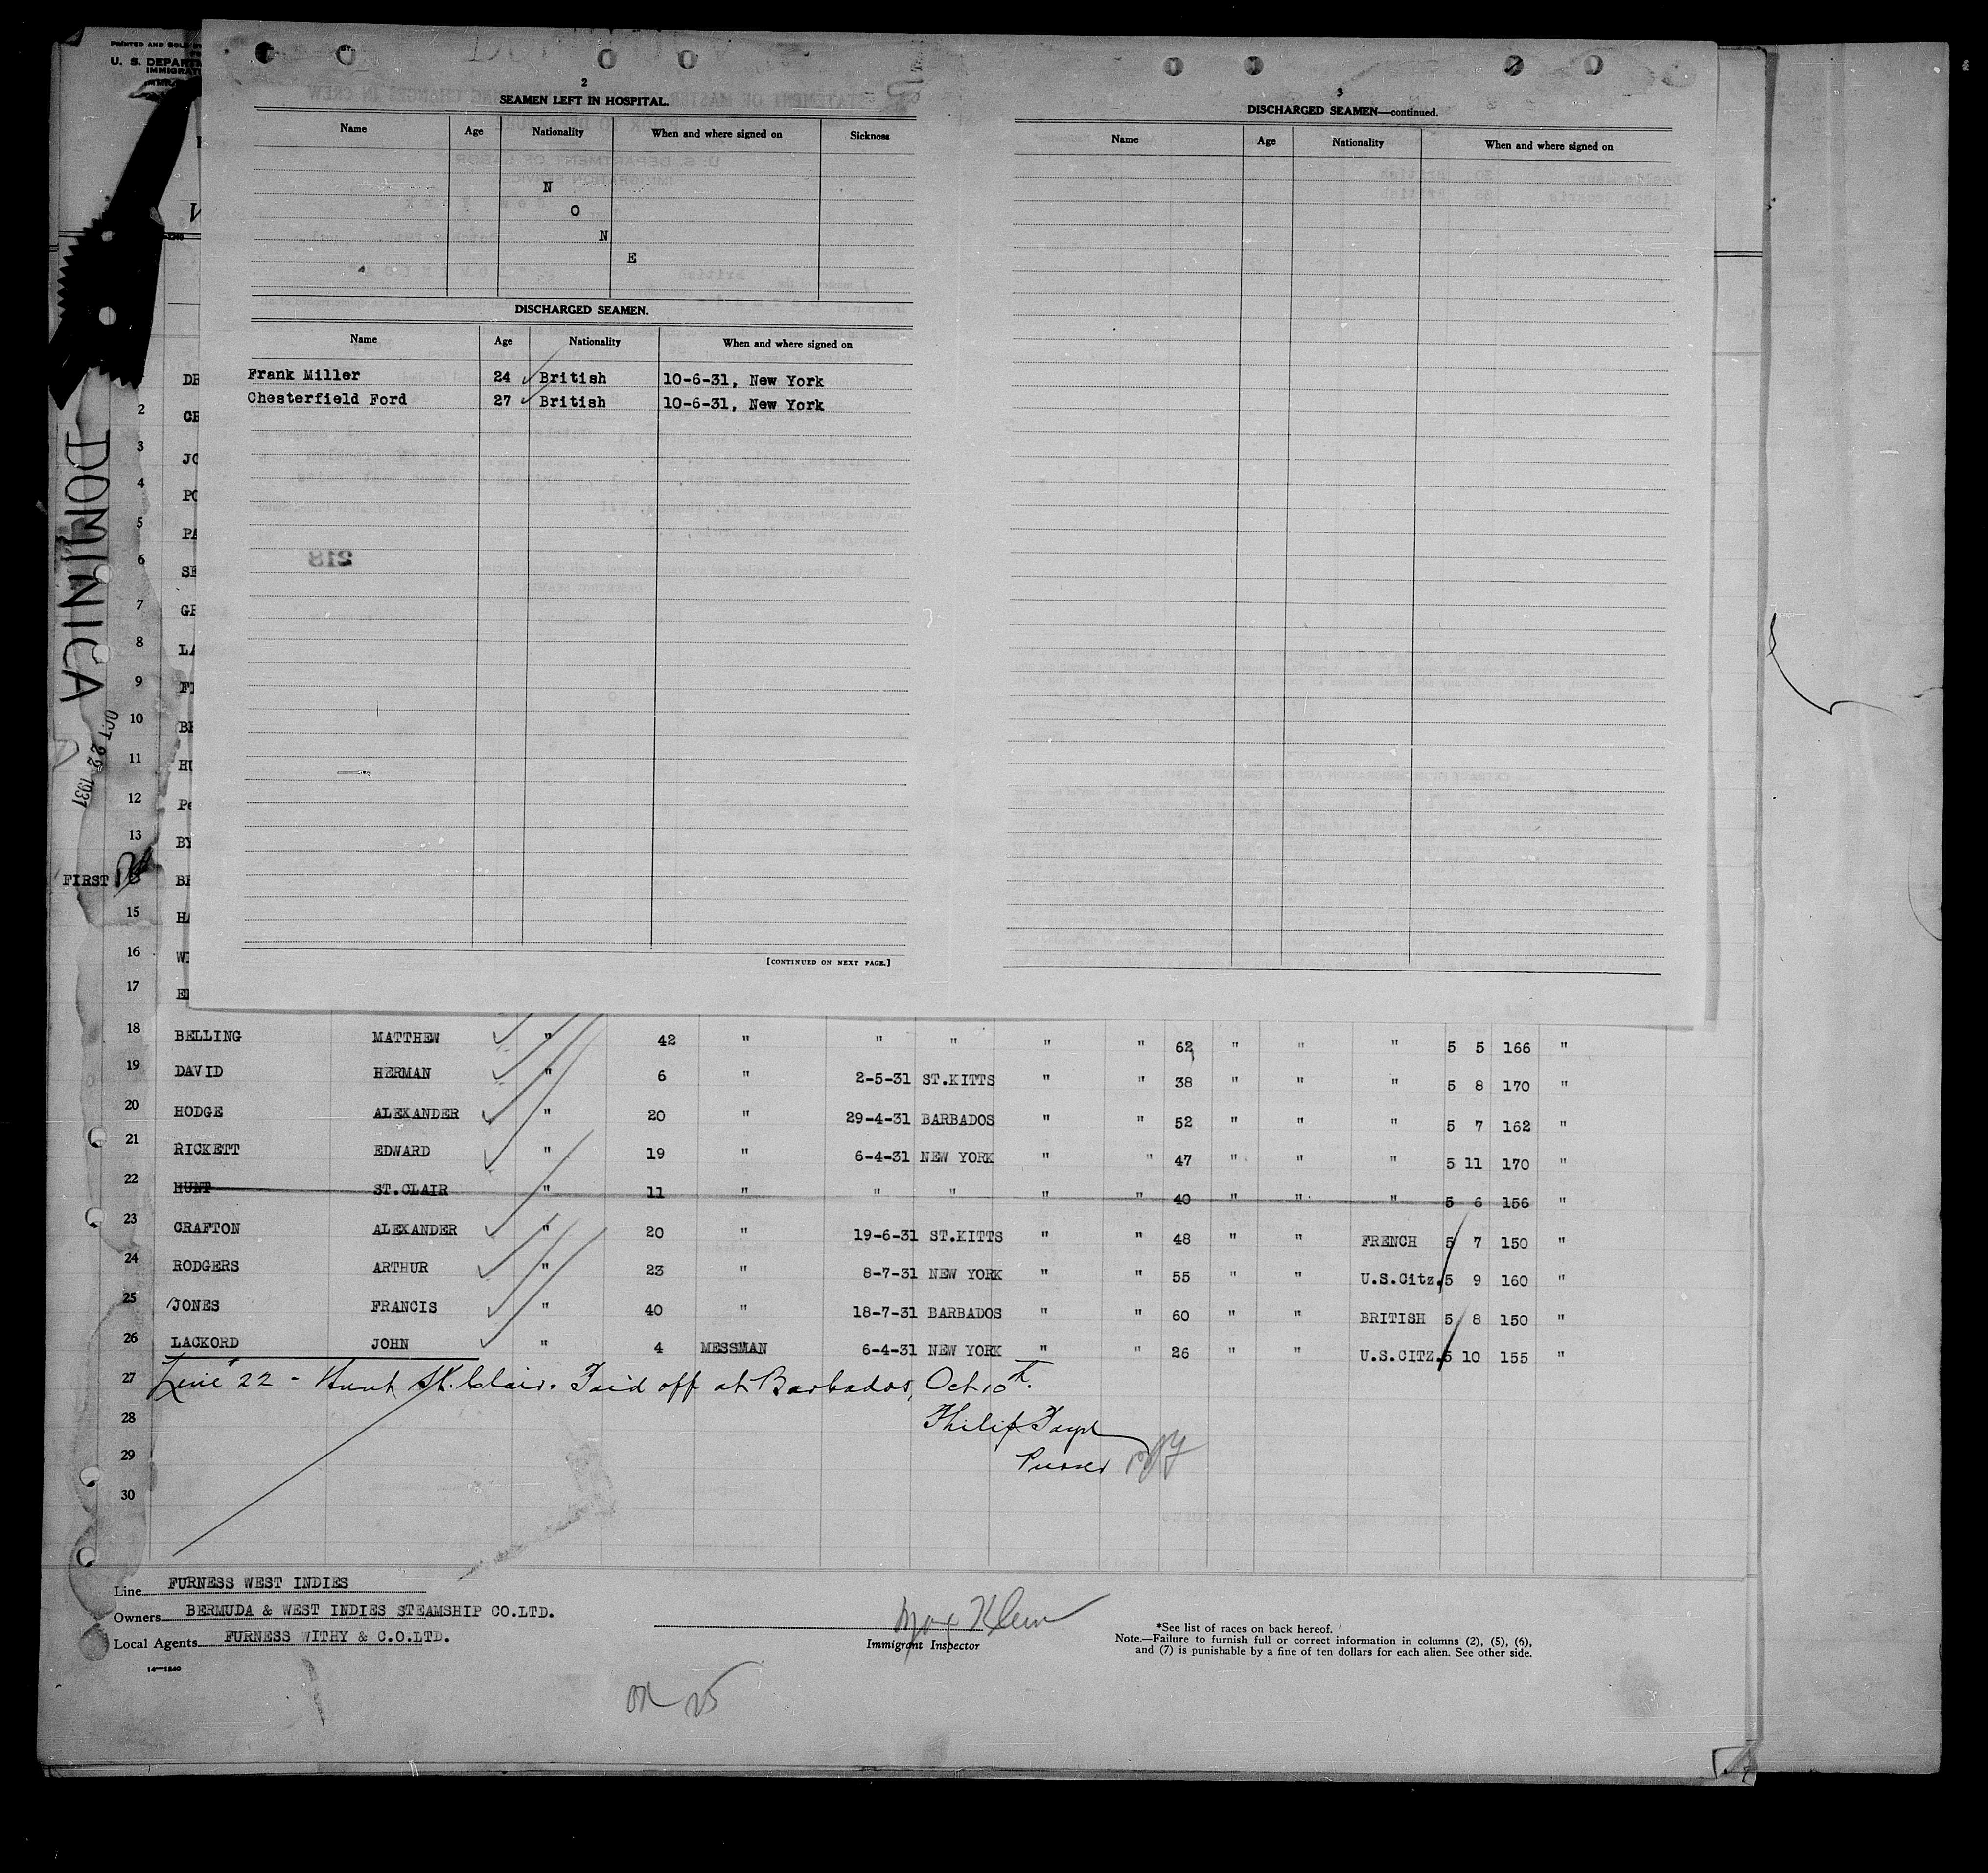 PRINTED AND SOLD BY
U. S. DEPART
IMMIGRAT
2
SEAMEN LEFT IN HOSPITAL.
Name Age Nationality When and where signed on Sickness
N
O
N
E
DISCHARGED SEAMEN.
Name Age Nationality When and where signed on
Frank Miller 24 British 10-6-31, New York
Chesterfield Ford 27 British 10-6-31, New York
[CONTINUED ON NEXT PAGE.]
3
DISCHARGED SEAMEN—continued.
Name Age Nationality When and where signed on
DOMINICA
OCT 22 1931
FIRST
DE
2 CE
3 JO
4 PO
5 PA
6 SE
7 GE
8 LA
9 FI
10 BE
11 HU
12 Pe
13 BY
BE
15 HA
16 WI
17 EL
18 BELLING MATTHEW " 42 " " " " " 62 " " " 5 5 166 "
19 DAVID HERMAN " 6 " 2-5-31 ST.KITTS " " 38 " " " 5 8 170 "
20 HODGE ALEXANDER " 20 " 29-4-31 BARBADOS " " 52 " " " 5 7 162 "
21 RICKETT EDWARD " 19 " 6-4-31 NEW YORK " " 47 " " " 5 11 170 "
22 HUNT ST.CLAIR " 11 " " " " " 40 " " " 5 6 156 "
23 CRAFTON ALEXANDER " 20 " 19-6-31 ST.KITTS " " 48 " " FRENCH 5 7 150 "
24 RODGERS ARTHUR " 23 " 8-7-31 NEW YORK " " 55 " " U.S.Citz. 5 9 160 "
25 JONES FRANCIS " 40 " 18-7-31 BARBADOS " " 60 " " BRITISH 5 8 150 "
26 LACKORD JOHN " 4 MESSMAN 6-4-31 NEW YORK " " 26 " " U.S.CITZ. 5 10 155 "
27 Line 22 - Hunt St. Clair. Paid off at Barbados, Oct 10th.
28 Philip
29 Purser
30
Line FURNESS WEST INDIES
Owners BERMUDA & WEST INDIES STEAMSHIP CO.LTD.
Local Agents FURNESS WITHY & C.O.LTD.
14—1240
Max Klein
Immigrant Inspector
*See list of races on back hereof.
Note.—Failure to furnish full or correct information in columns (2), (5), (6),
and (7) is punishable by a fine of ten dollars for each alien. See other side.
25